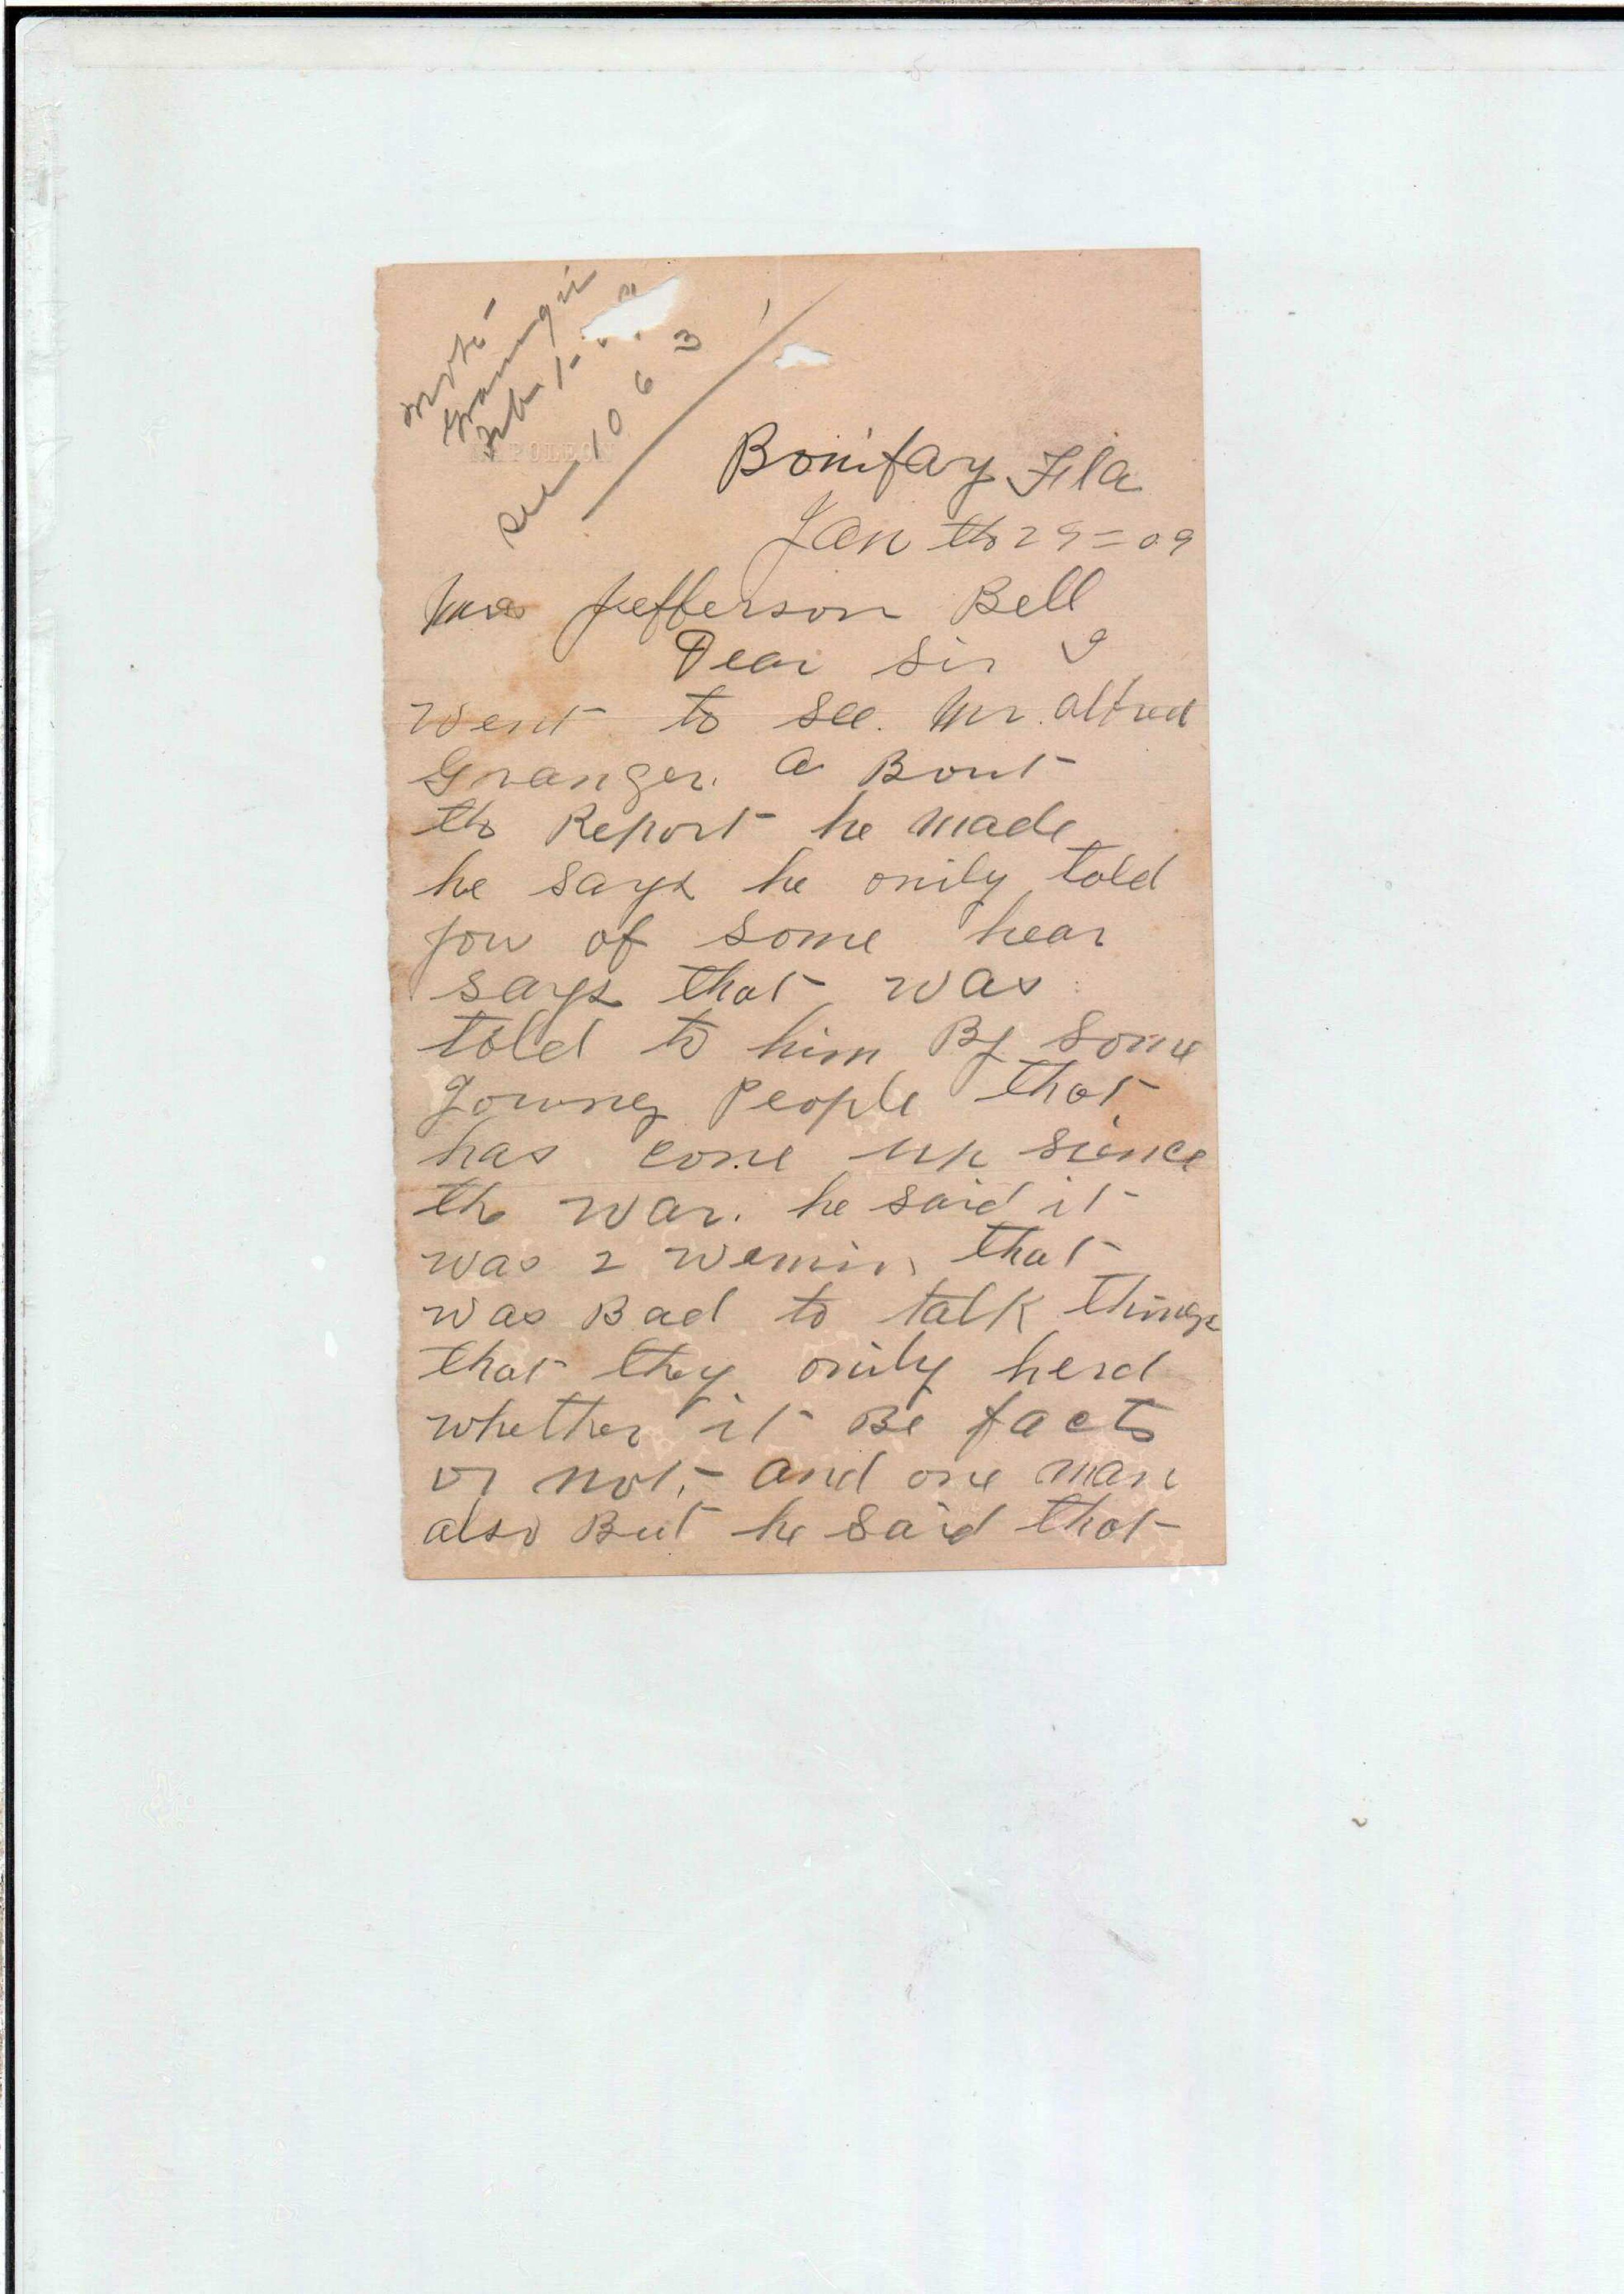 wrote
Granger
Feb 1-
see 10 6 3
Bonifay Fla
Jan th 29=09
Jefferson Bell
Dear Sir I
went to see. Mr. alfred
Granger. a Bout
the Report he made
he says he onily told
you of some hear
says that was
told to him By some
Youney People that
has come up sience
the war. he said it
was 2 wemin that
was Bad to talk things
that they onily herd
whether it Be facts
or not,- and one man
also But he said that